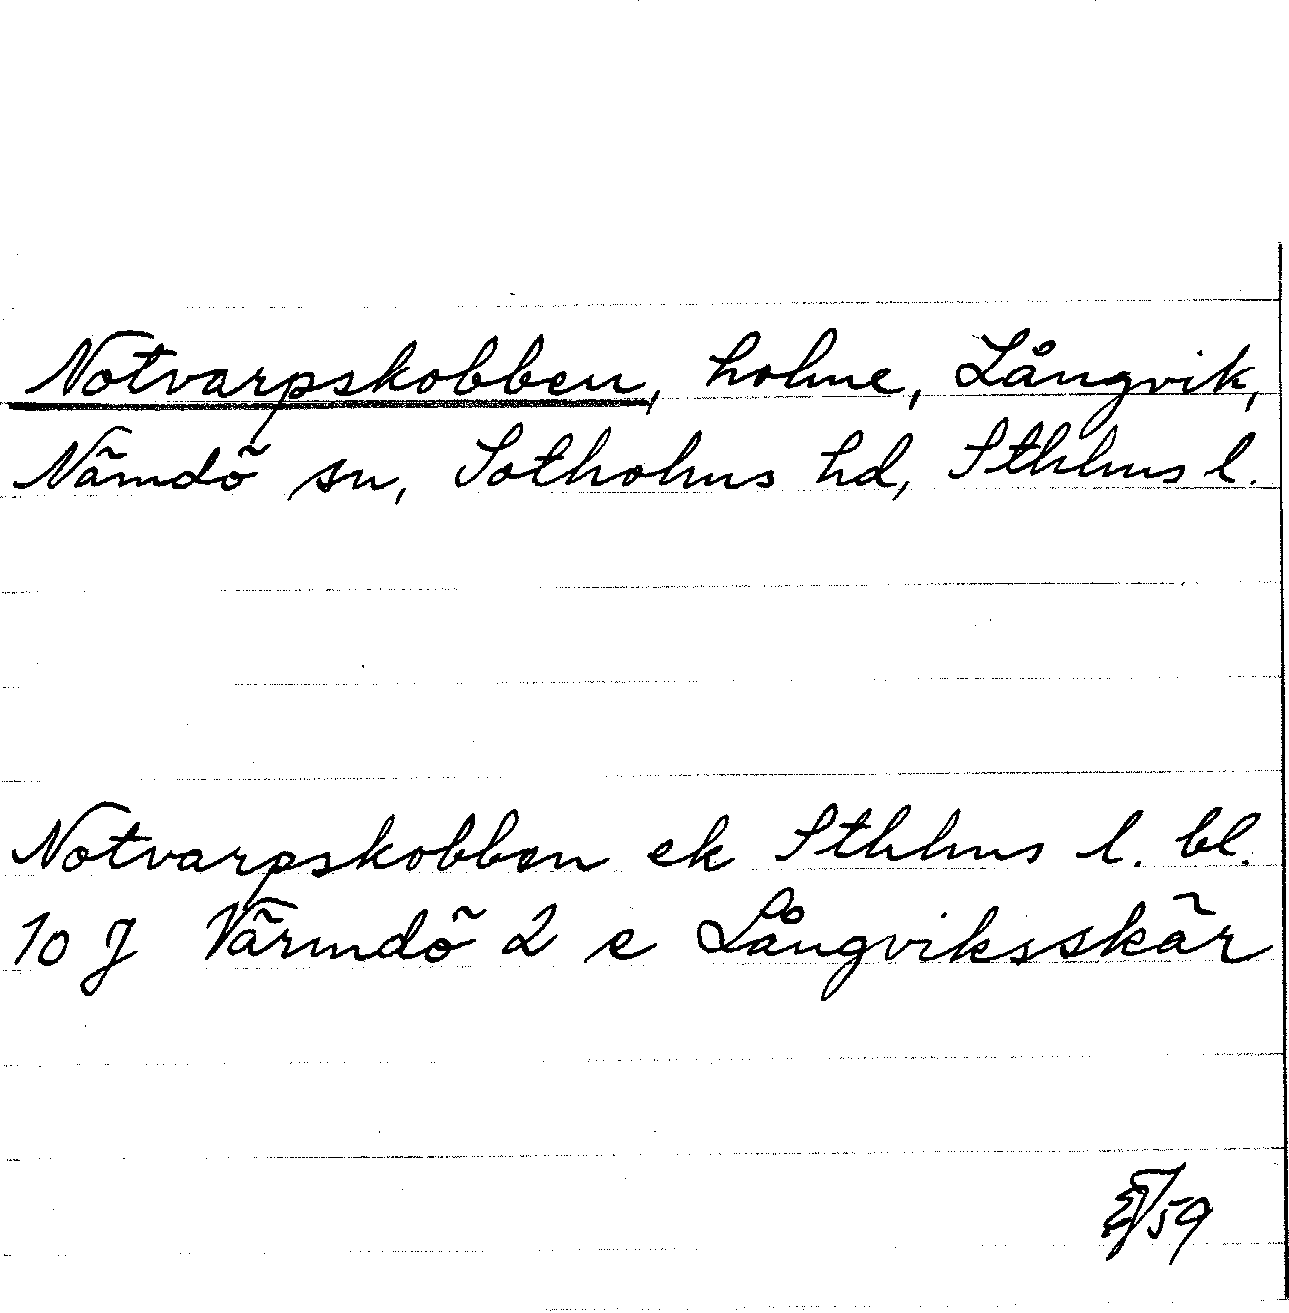 Notvarpskobben, holme, Långvik,
Nämdö sn, Sotholms hd, Sthlms l.
Notvarpskobben ek Sthlms l. bl.
10 J Värmdö 2 c Långviksskär
/59